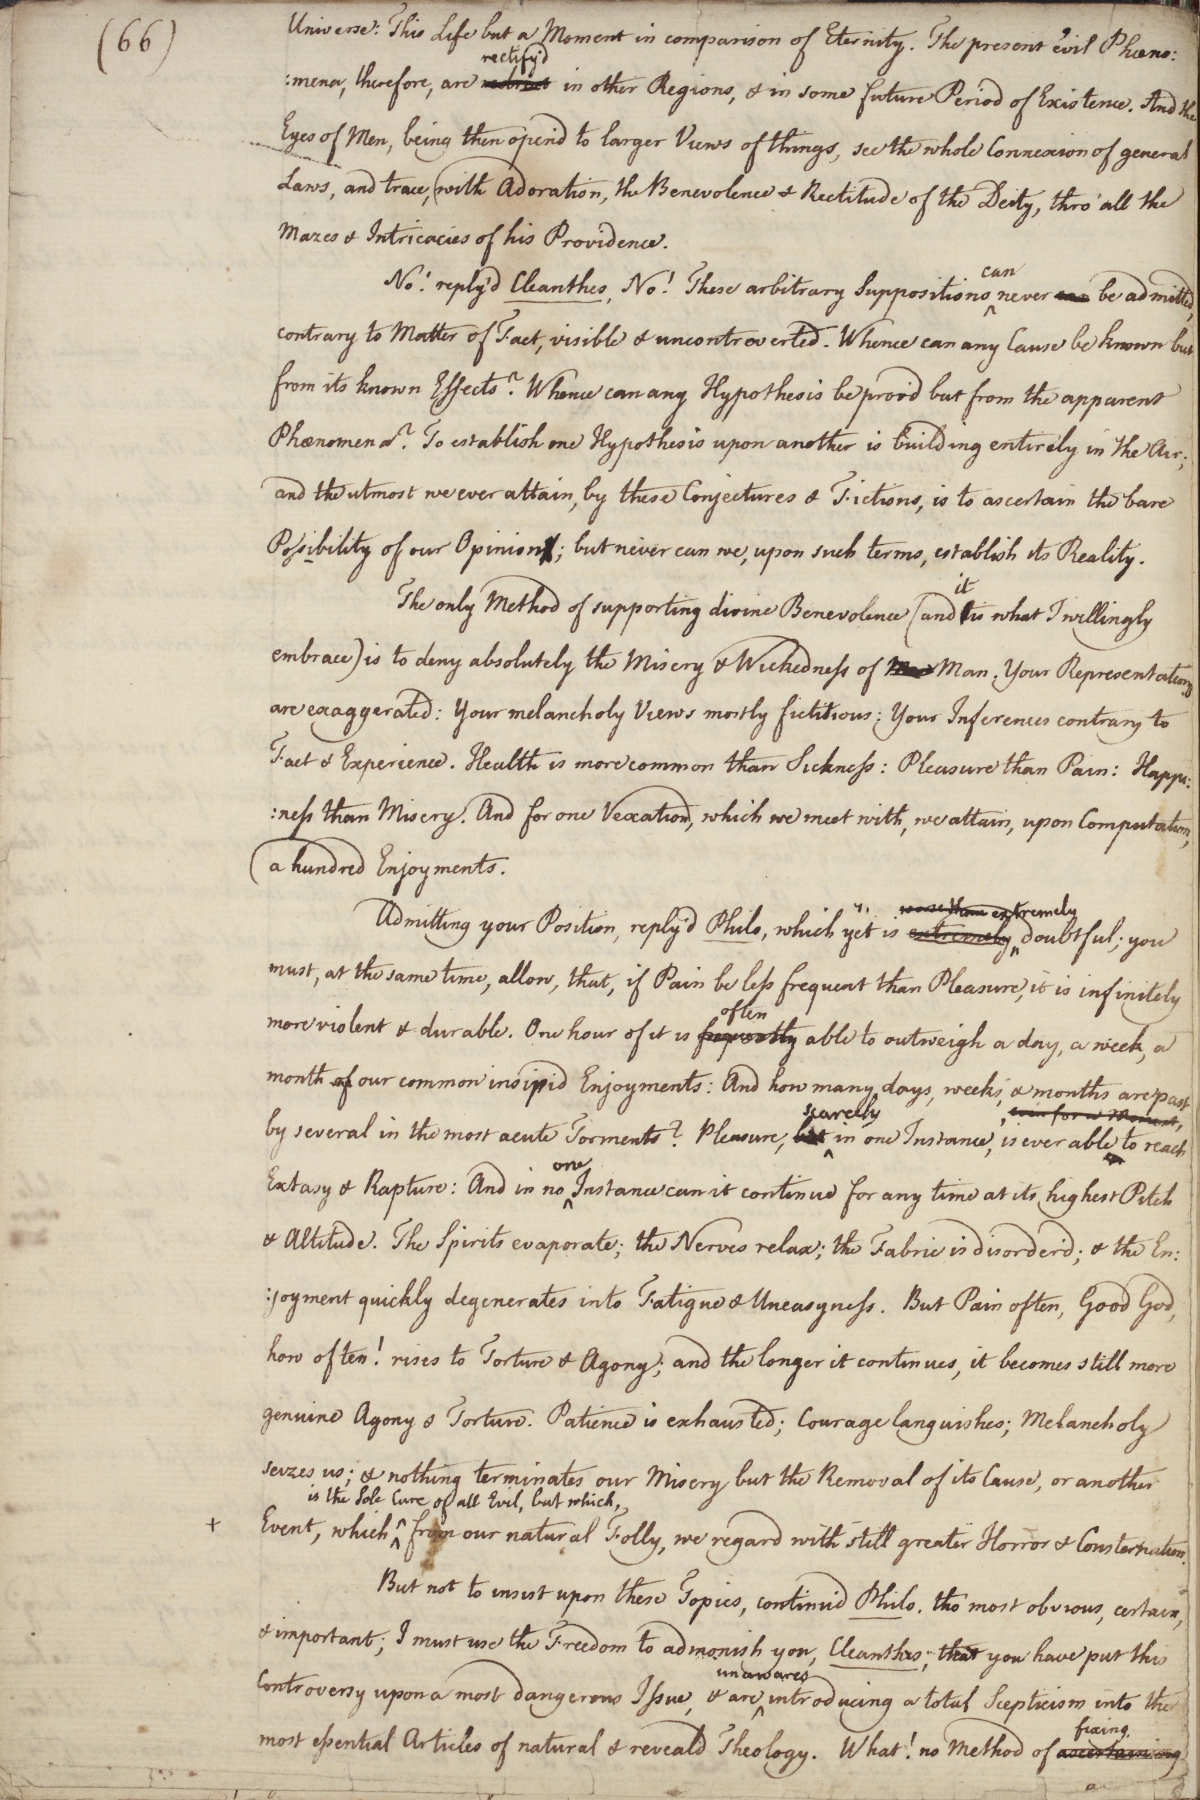 (66)
Universe: This Life but a Moment in comparison of Eternity. The present evil Phæno:
rectify'd
:mena, therefore, are in other Regions, & in some future Period of Existence. And the
Eyes of Men, being then open'd to larger Views of things, see the whole Connexion of general
Laws, and trace, with Adoration, the Benevolence & Rectitude of the Deity, thro' all the
Mazes & Intricacies of his Providence.
can
No! reply'd Cleanthes, No! These arbitrary Suppositions never can be admitted,
contrary to Matter of Fact, visible & uncontroverted. Whence can any Cause be known but
from its known Effects? Whence can any Hypothesis be prov'd but from the apparent
Phænomena? To establish one Hypothesis upon another is building entirely in the Air;
and the utmost we ever attain, by these Conjectures & Fictions, is to ascertain the bare
Possibility of our Opinion; but never can we, upon such terms, establish its Reality.
it
The only Method of supporting divine Benevolence (and is what I willingly
embrace) is to deny absolutely the Misery & Wickedness of Man. Your Representations
are exaggerated: Your melancholy Views mostly fictitious: Your Inferences contrary to
Fact & Experience. Health is more common than Sickness: Pleasure than Pain: Happi:
:ness than Misery. And for one Vexation, which we meet with, we attain, upon Computation,
a hundred Enjoyments.
more than extremely
Admitting your Position, reply'd Philo, which yet is extremely doubtful; you
must, at the same time, allow, that, if Pain be less frequent than Pleasure, it is infinitely
often
more violent & durable. One hour of it is frequently able to outweigh a day, a week, a
month of our common insipid Enjoyments: And how many days, weeks, & months are past
scarcely even for a Moment,
by several in the most acute Torments? Pleasure, but in one Instance, is ever able to reach
one
Extasy & Rapture: And in no Instance can it continue for any time at its highest Pitch
& Altitude. The Spirits evaporate; the Nerves relax; the Fabric is disorder'd; & the En:
:joyment quickly degenerates into Fatigue & Uneasyness. But Pain often, Good God,
how often! rises to Torture & Agony; and the longer it continues, it becomes still more
genuine Agony & Torture. Patience is exhausted; Courage languishes; Melancholy
seizes us; & nothing terminates our Misery but the Removal of its Cause, or another
is the Sole Cure of all Evil, but which,
+ Event, which from our natural Folly, we regard with still greater Horror & Consternation.
But not to insist upon these Topics, continu'd Philo, tho most obvious, certain,
& important; I must use the Freedom to admonish you, Cleanthes, that you have put this
unawares
Controversy upon a most dangerous Issue, & are introducing a total Scepticism into the
most essential Articles of natural & reveal'd Theology. What! no Method of ascertaining
fixing
a